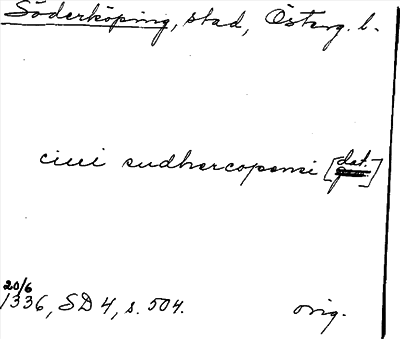 Söderköping, stad, Österg. l.
ciui sudhercopensi [dat.]
20/6
1336, SD 4, s. 504. orig.